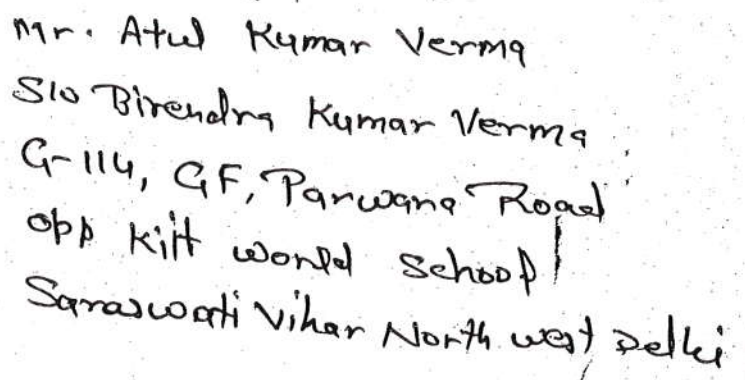 Mr. Atul Kumar Verma
S/o Birendra Kumar Verma
G-114, GF, Parwana Road
opp Kiit world school
Saraswati Vihar North west Delhi